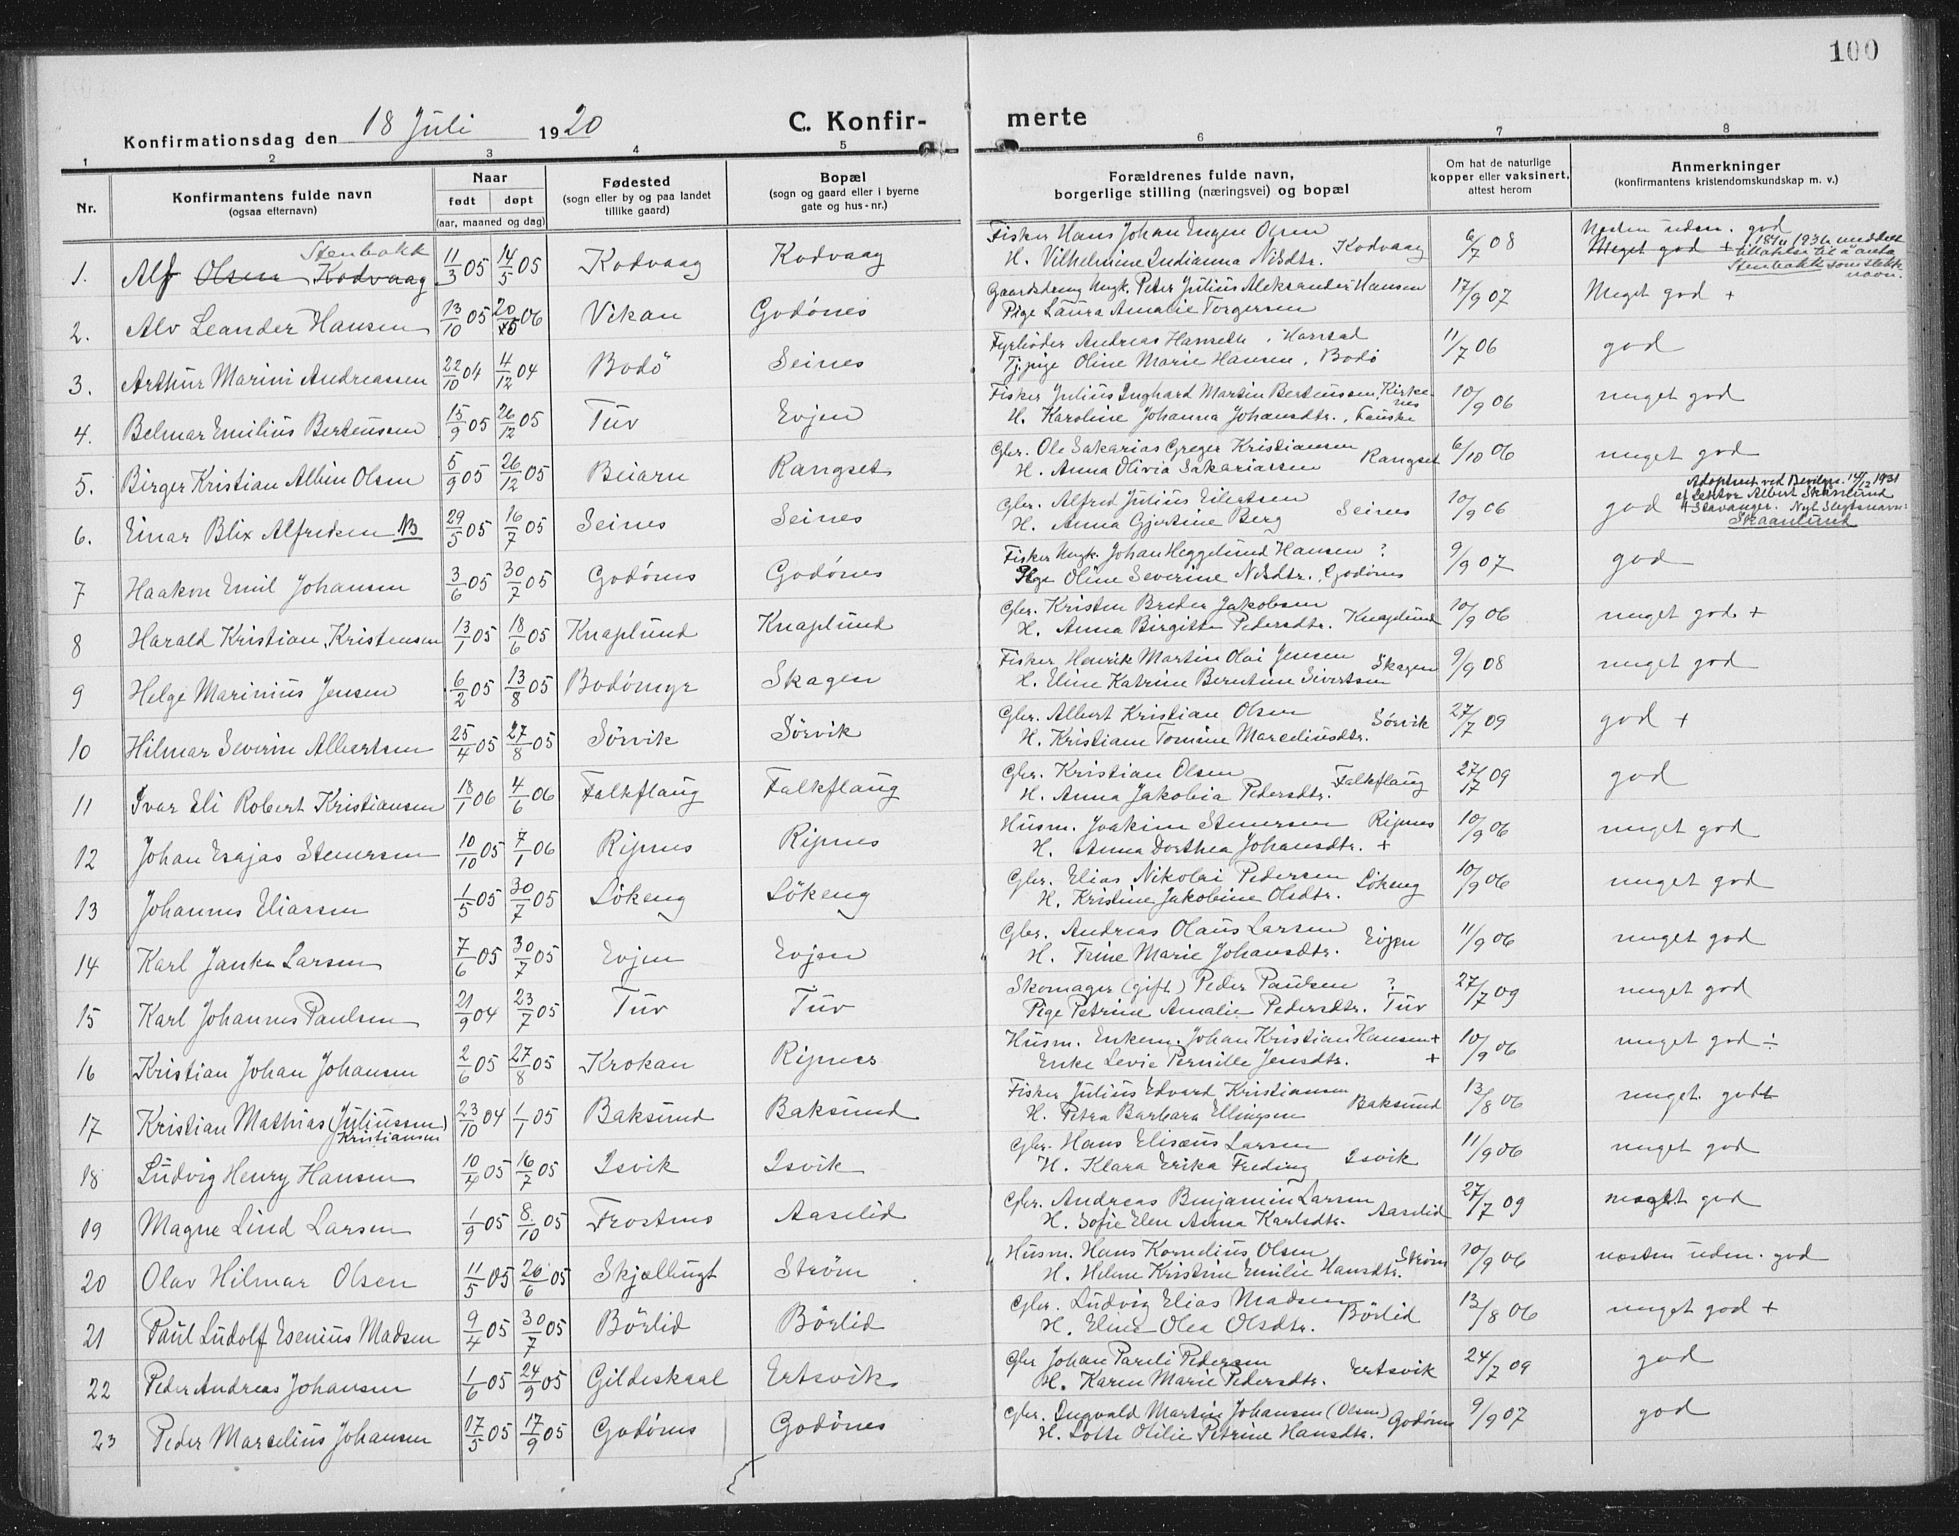 100
Konfirmationsdag den 18 Juli 1920 C. Konfir- merte
1 2 3 4 5 6 7 8
Nr. Konfirmantens fulde navn (ogsaa efternavn) Naar født døpt (aar, maaned og dag) Fødested (sogn eller by og paa landet tillike gaard) Bopæl (sogn og gaard eller i byerne gate og hus-nr.) Forældrenes fulde navn, borgerlige stilling (næringsvei) og bopæl Om hat de naturlige kopper eller vaksinert, attest herom Anmerkninger (konfirmantens kristendomskundskap m. v.)
Stenbakk
1. Alf Olsen Kodvaag 11/3 05 14/5 05 Kodvaag Kodvaag Fisker Hans Johan Eugen Olsen Kodvaag 6/7 08 Næsten uden. god
H. Vilhelmine Indianna Nilsdtr. Meget god + 18/11 1936 meddelt tillatelse til å anta Stenbakk som slektsnavn.
2. Alv Leander Hansen 13/10 05 20/5 06 Vikan Godönes Gaardsdreng Ungk. Peter Julius Aleksander Hansen 17/9 07 Meget god +
Pige Laura Amalie Torgersen
3. Arthur Marini Andreassen 22/10 04 4/12 04 Bodö Seines Fyrbøder Andreas Hanseth, Harstad 11/7 06 god
Tj.pige Oline Marie Hansen, Bodö
4. Belmar Emilius Berteussen 15/9 05 26/12 05 Tuv Evjen Fisker Julius Inghard Martin Berteussen, Kirkenes 10/9 06 meget god
H. Karoline Johanna Johansdtr., Fauske
5. Birger Kristian Albin Olsen 5/9 05 26/12 05 Beiarn Rangset Gbr. Ole Sakarias Greger Kristiansen Rangset 6/10 06 meget god
H. Anna Olivia Sakariassen
6. Einar Blix Alfredsen NB 29/5 05 16/7 05 Seines Seines Gbr. Alfred Julius Eilertsen Seines 10/9 06 god Adoptert ved Bevilgn. 14/12 1931 af Lektor Albert Skaanlund Stavanger. Nyt Slegtsnavn: Skaanlund
H. Anna Gjertine Berg
7 Haakon Emil Johansen 3/6 05 30/7 05 Godönes Godönes Fisker Ungk. Johan Heggelund Hansen ? 9/9 07 god
Pige Oline Severine Nilsdtr., Godönes
8 Harald Kristian Kristensen 13/1 05 18/6 05 Knaplund Knaplund Gbr. Kristen Breder Jakobsen Knaplund 10/9 06 meget god +
H. Anna Birgitte Pedersdtr.
9 Helge Marinius Jensen 6/2 05 13/8 05 Bodömyr Skagen Fisker Henrik Martin Olai Jensen Skagen 9/9 08 meget god
H. Eline Katrine Berntine Sivertsen
10 Hilmar Severin Albertsen 25/4 05 27/8 05 Sörvik Sörvik Gbr. Albert Kristian Olsen Sörvik 27/7 09 god +
H. Kristiane Tomine Marceliusdtr.
11 Ivar Eli Robert Kristiansen 18/1 06 4/6 06 Falkflaug Falkflaug Gbr. Kristian Olsen Falkflaug 27/7 09 god
H. Anna Jakobia Pedersdtr.
12 Johan Esajas Stenersen 10/10 05 7/1 06 Ripnes Ripnes Husm. Joakim Stenersen Ripnes 10/9 06 meget god
H. Anna Dorthea Johansdtr. +
13 Johannes Eliassen 1/5 05 30/7 05 Lökeng Lökeng Gbr. Elias Nikolai Pedersen Lökeng 10/9 06 meget god
H. Kristine Jakobine Olsdtr.
14 Karl Janke Larsen 7/6 05 30/7 05 Evjen Evjen Gbr. Andreas Olaus Larsen Evjen 11/9 06 meget god
H. Trine Marie Johansdtr.
15 Karl Johannes Paulsen 21/9 04 23/7 05 Tuv Tuv Skomager (gift) Peder Paulsen ? 27/7 09 meget god
Pige Petrine Amalie Pedersdtr. Tuv
16 Kristian Johan Johansen 2/6 05 27/8 05 Krokan Ripnes Husm. Enkem. Johan Kristian Hansen + 10/9 06 meget god ÷
Enke Levie Pernille Jensdtr. +
17 Kristian Mathias (Juliussen) Kristiansen 23/10 04 1/1 05 Baksund Baksund Fisker Julius Edvard Kristiansen Baksund 13/8 06 meget god+
H. Petra Barbara Ellingsen
18 Ludvig Henry Hansen 10/4 05 16/7 05 Isvik Isvik Gbr. Hans Elisæus Larsen Isvik 11/9 06 meget god
H. Klara Erika Freding
19 Magne Lind Larsen 1/9 05 8/10 05 Frostmo Aaselid Gbr. Andreas Benjamin Larsen Aaselid 27/7 09 meget god
H. Sofie Elen Anna Karlsdtr.
20 Olav Hilmar Olsen 11/5 05 26/6 05 Skjælbugt Ström Husm. Hans Kornelius Olsen Ström 10/9 06 næsten uden. god
H. Helene Kristine Emilie Hansdtr.
21 Paul Ludolf Esenius Madsen 9/4 05 30/7 05 Börlid Börlid Gbr. Ludvig Elias Madsen Börlid 13/8 06 meget god +
H. Eline Olea Olsdtr.
22 Peder Andreas Johansen 1/6 05 24/9 05 Gildeskaal Ertsvik Gbr Johan Pareli Pedersen Ertsvik 24/7 09 god
H. Karen Marie Pedersdtr.
23 Peder Marselius Johansen 17/5 05 17/9 05 Godönes Godönes Gbr. Ingvald Martin Johansen (Olsen) Godönes 9/9 07 god
H. Lotte Otilie Petrine Hansdtr.